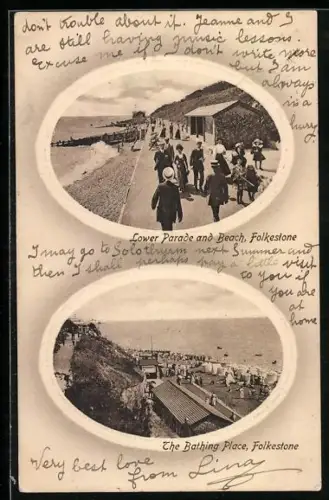 don't trouble about it. Jeanne and I
are still having music lessons.
Excuse me if I don't write more
but I am
always
in a
hurry.
Lower Parade and Beach, Folkestone
I may go to Solothurn next Summer and
then I shall perhaps pay a little visit
to you if
you are
at
home
The Bathing Place, Folkestone
Very best love
from Lina